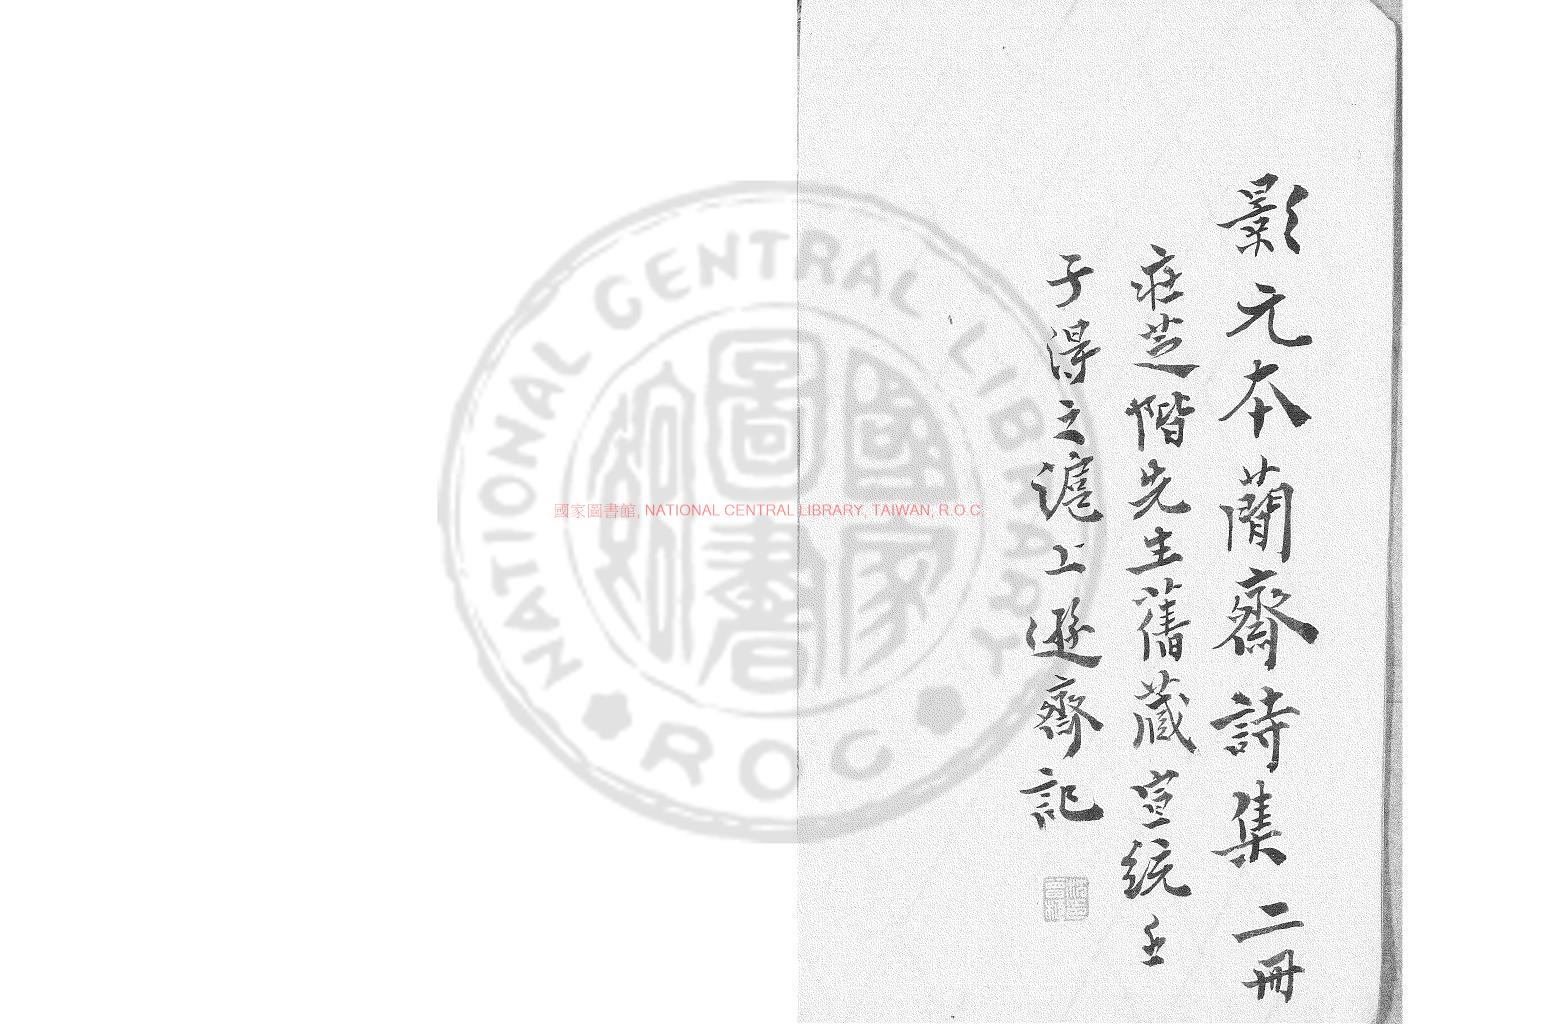 影元本蕳齋詩集二冊
莊芝階先生舊藏宣統壬
子得之滬上遯齋記
國家圖書館, NATIONAL CENTRAL LIBRARY, TAIWAN, R.O.C.
NATIONAL CENTRAL LIBRARY
ROC